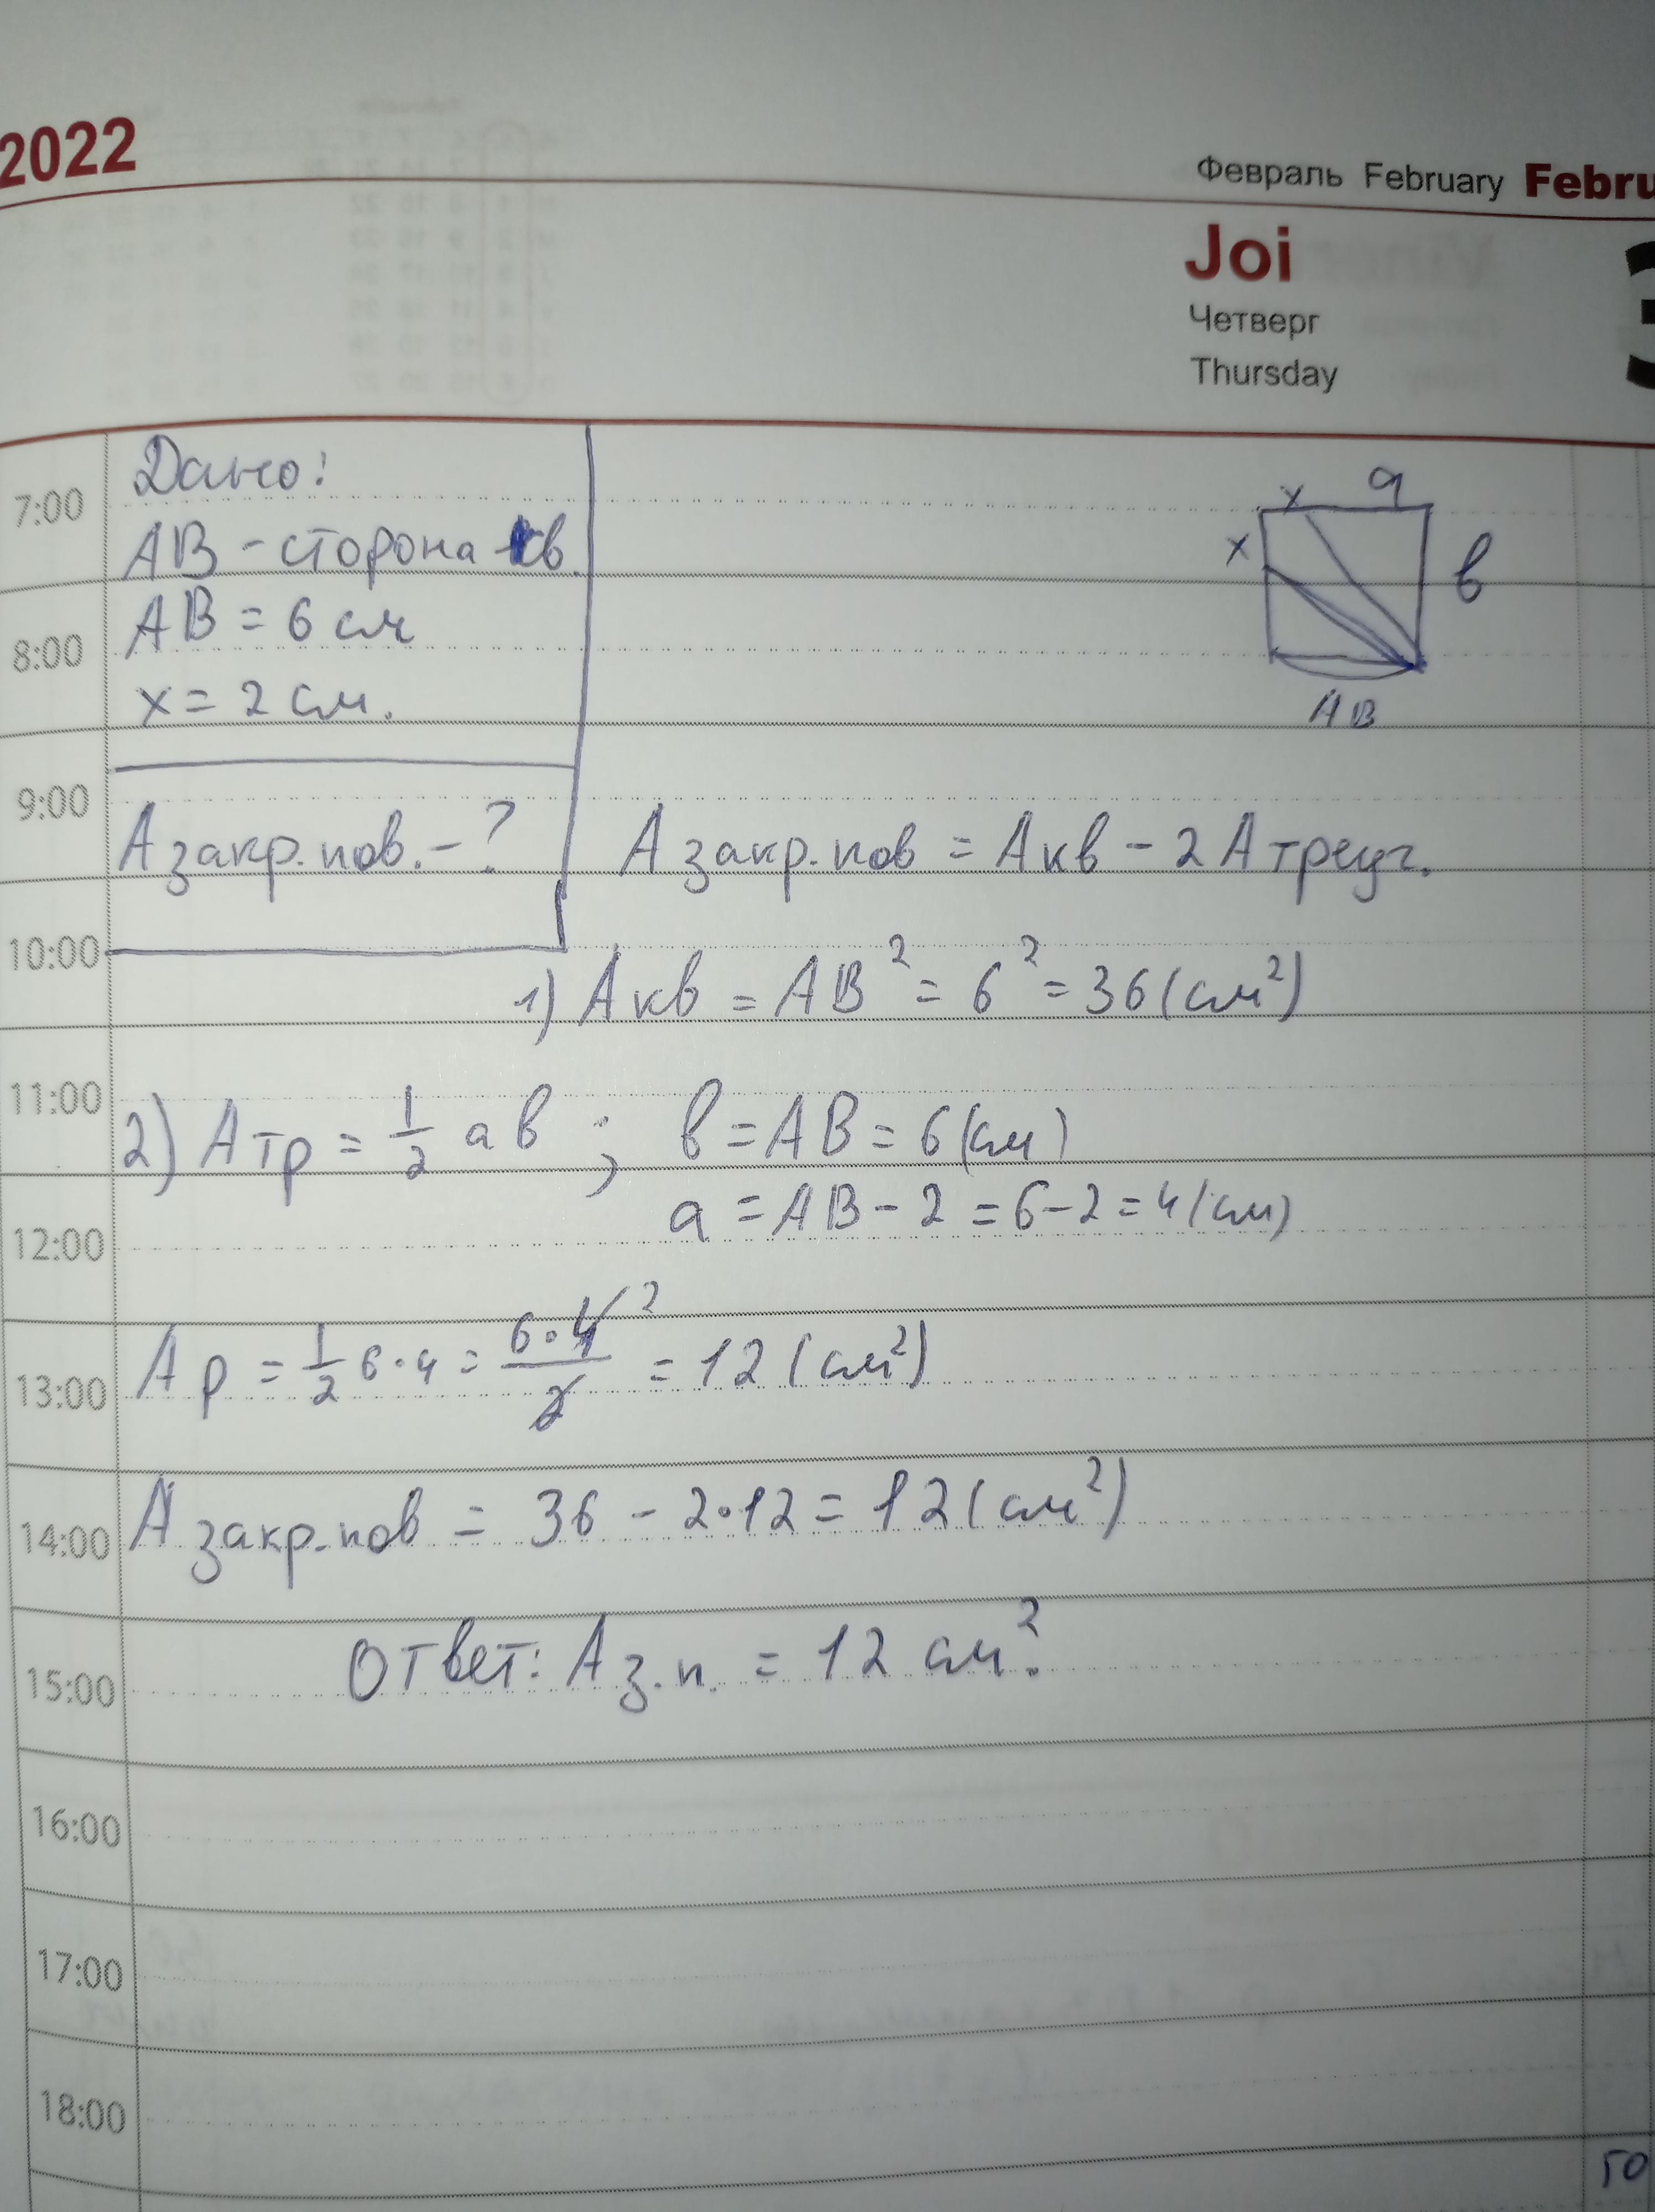 2022
Февраль February Febru
Joi
3
Четверг
Thursday
7:00
8:00
9:00
10:00
11:00
12:00
13:00
14:00
15:00
16:00
17:00
18:00
Дано:
AB - сторона кв.
AB = 6 см
x = 2 см.
A закр. пов. - ?
x a
x в
AB
A закр. пов = A кв - 2 A треуг.
1) A кв = AB² = 6² = 36 (см²)
2) A тр = 1/2 a в ; в = AB = 6 (см)
a = AB - 2 = 6 - 2 = 4 (см)
A р = 1/2 6 · 4 = 6 · 4 / 2 2 = 12 (см²)
A закр. пов = 36 - 2 · 12 = 12 (см²)
Ответ: A з. п. = 12 см².
50